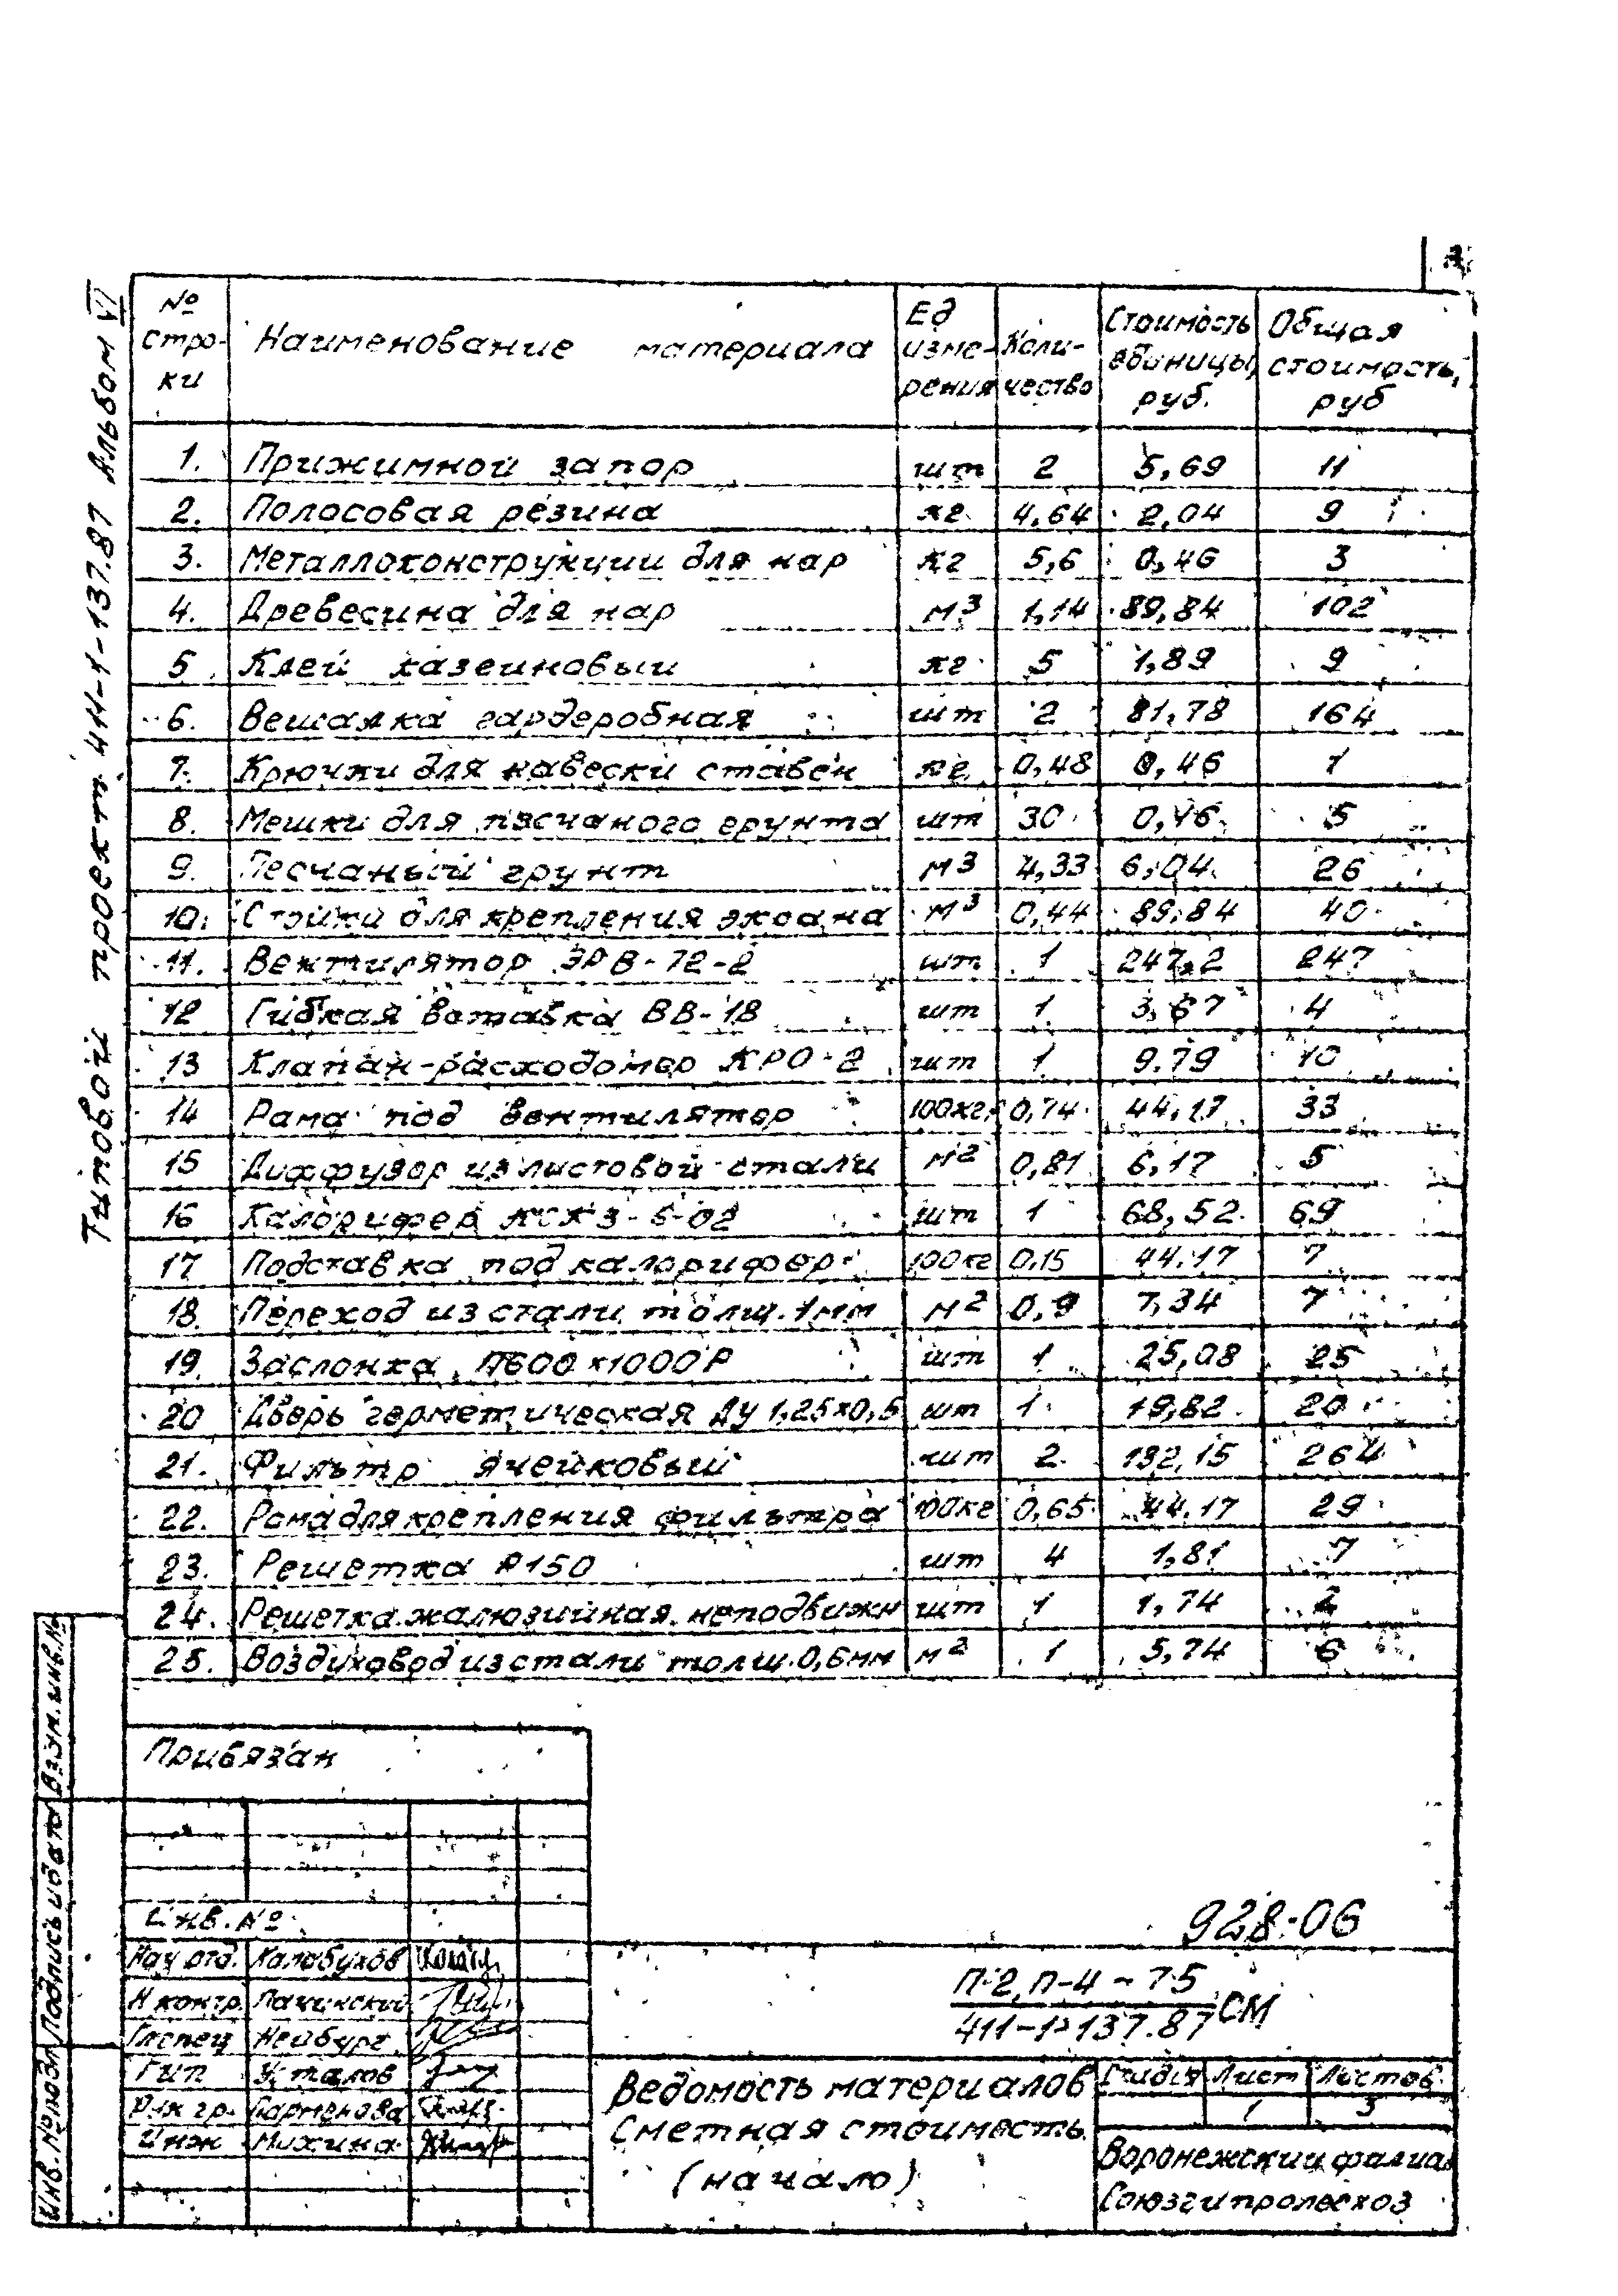 Типовой проект 411-1-137.87 Альбом VI
№ строки Наименование материала Ед измерения Количество Стоимость единицы, руб. Общая стоимость, руб
1. Прижимной запор шт 2 5,69 11
2. Полосовая резина кг 4,64 2,04 9
3. Металлоконструкции для нар кг 5,6 0,46 3
4. Древесина для нар м3 1,14 89,84 102
5 Клей казеиновый кг 5 1,89 9
6. Вешалка гардеробная шт 2 81,78 164
7. Крючки для навески ставен кг 0,48 0,46 1
8. Мешки для песчаного грунта шт 30 0,46 5
9. Песчаный грунт м3 4,33 6,04 26
10. Стойки для крепления экрана м3 0,44 89,84 40
11. Вентилятор ЭРВ-72-2 шт 1 247,2 247
12 Гибкая вставка ВВ-18 шт 1 3,67 4
13 Клапан-расходомер КРО-2 шт 1 9.79 10
14 Рама под вентилятор 100кг 0,74 44,17 33
15 Диффузор из листовой стали м2 0,81 6,17 5
16 Калорифер КСК3-6-02 шт 1 68,52 69
17 Подставка под калорифер 100кг 0,15 44.17 7
18. Переход из стали толщ. 1мм м2 0,9 7,34 7
19. Заслонка П600х1000Р шт 1 25,08 25
20 Дверь герметическая ДУ 1,25х0,5 шт 1 19,82 20
21. Фильтр ячейковый шт 2 132,15 264
22. Рама для крепления фильтра 100кг 0,65 44.17 29
23. Решетка Р150 шт 4 1,81 7
24. Решетка жалюзийная неподвижн шт 1 1,74 2
25. Воздуховод из стали толщ. 0,6мм м2 1 5,74 6
Привязан
Инв. №
928-06
Нач отд. Калабухов
Н контр.
Гл спец Нейбург
ГИП Усталов
Рук гр. Парменова
Инж Михина
П-2, П-4-75
411-1-137.87 СМ
Ведомость материалов
Сметная стоимость
(начало)
Стадия Лист Листов
1 3
Воронежский филиал
Союзгипролесхоз
Инв. № подл Подпись и дата Взам. инв. №